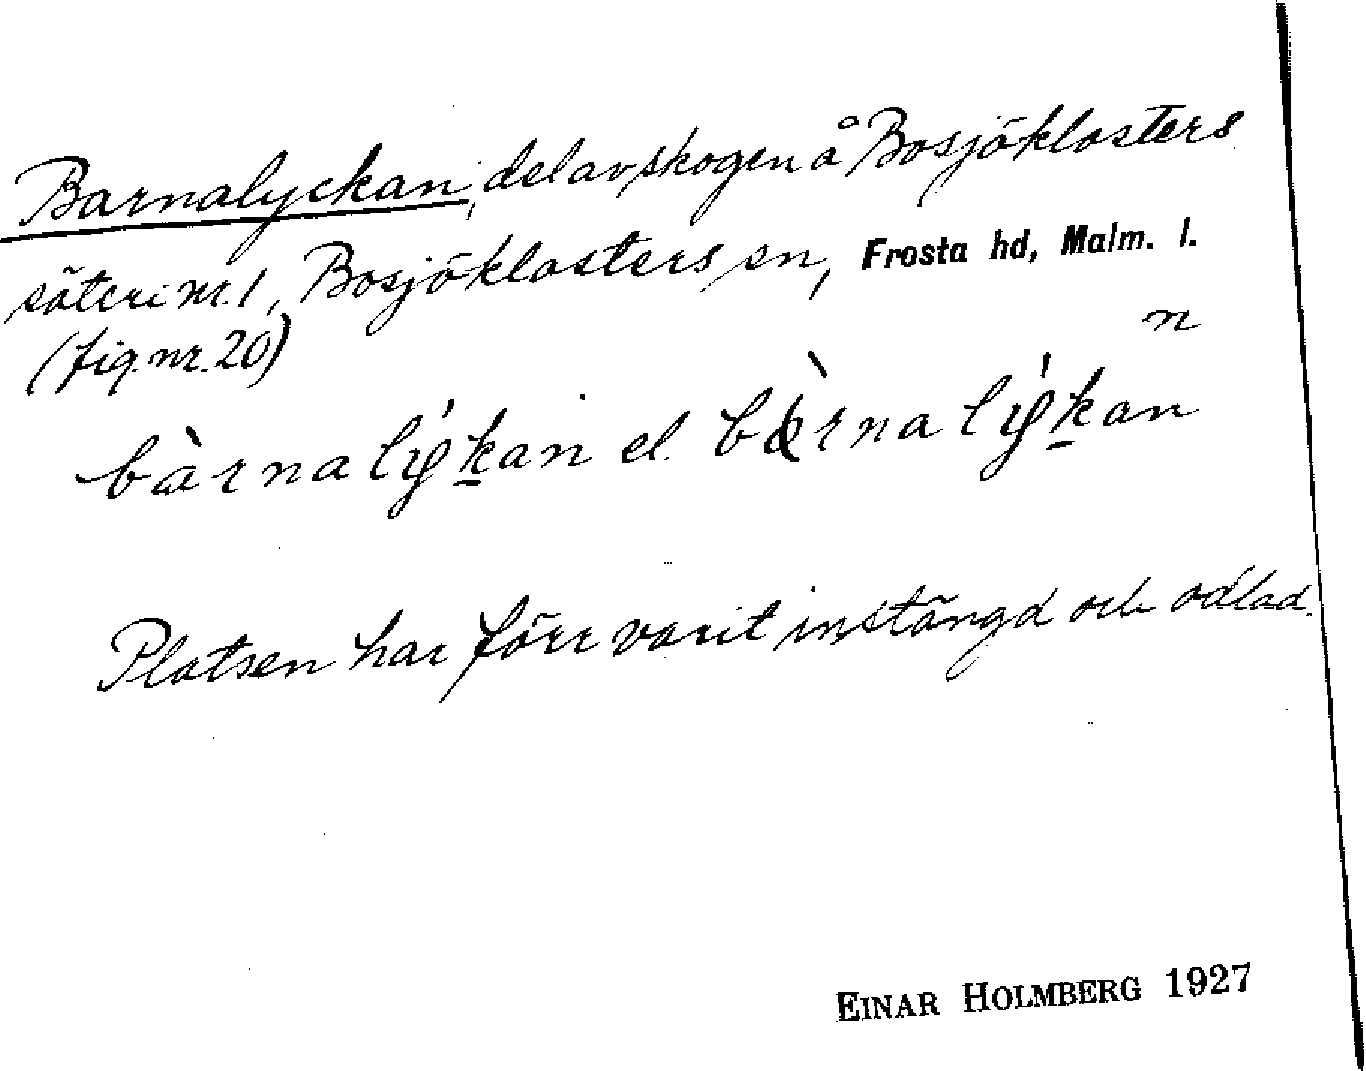 Barnalyckan, del av skogen å Bosjöklosters
säteri nr. 1, Bosjöklosters sn, Frosta hd, Malm. l.
(fig. nr. 20)
n
bàrnalýkan el. bàrnalýkan
Platsen har förr varit instängd och odlad.
EINAR HOLMBERG 1927